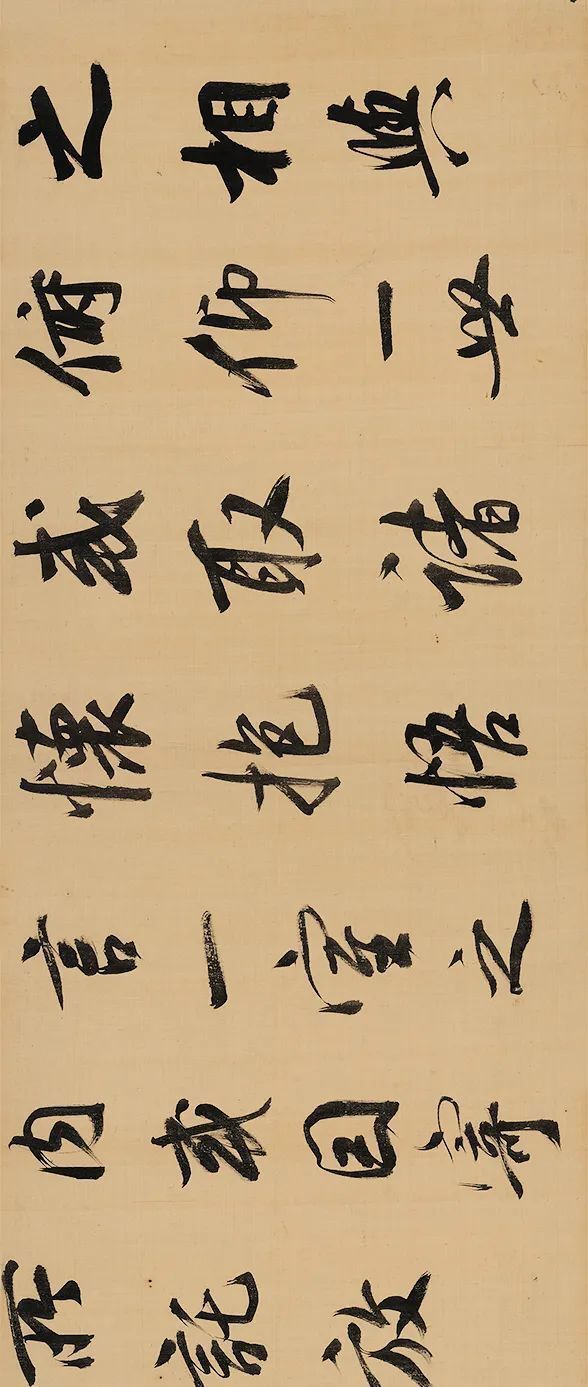 之相與
俯仰一世
或取諸
懷抱悟
言一室之
內或因寄
所託放